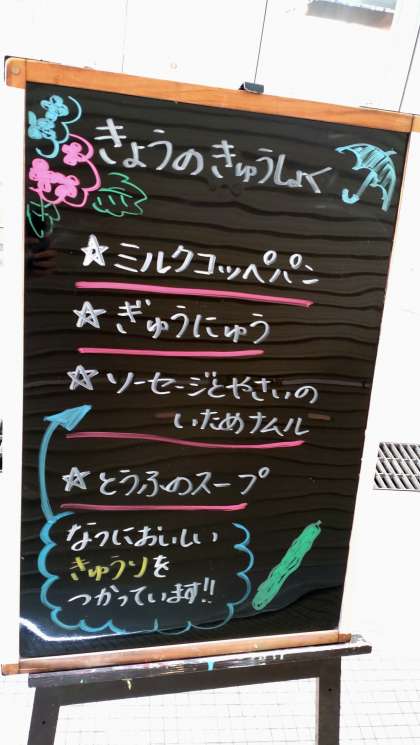 きょうのきゅうしょく
☆ ミルクコッペパン
☆ ぎゅうにゅう
☆ ソーセージとやさいの
いためナムル
☆ とうふのスープ
なつにおいしい
きゅうりを
つかっています!!